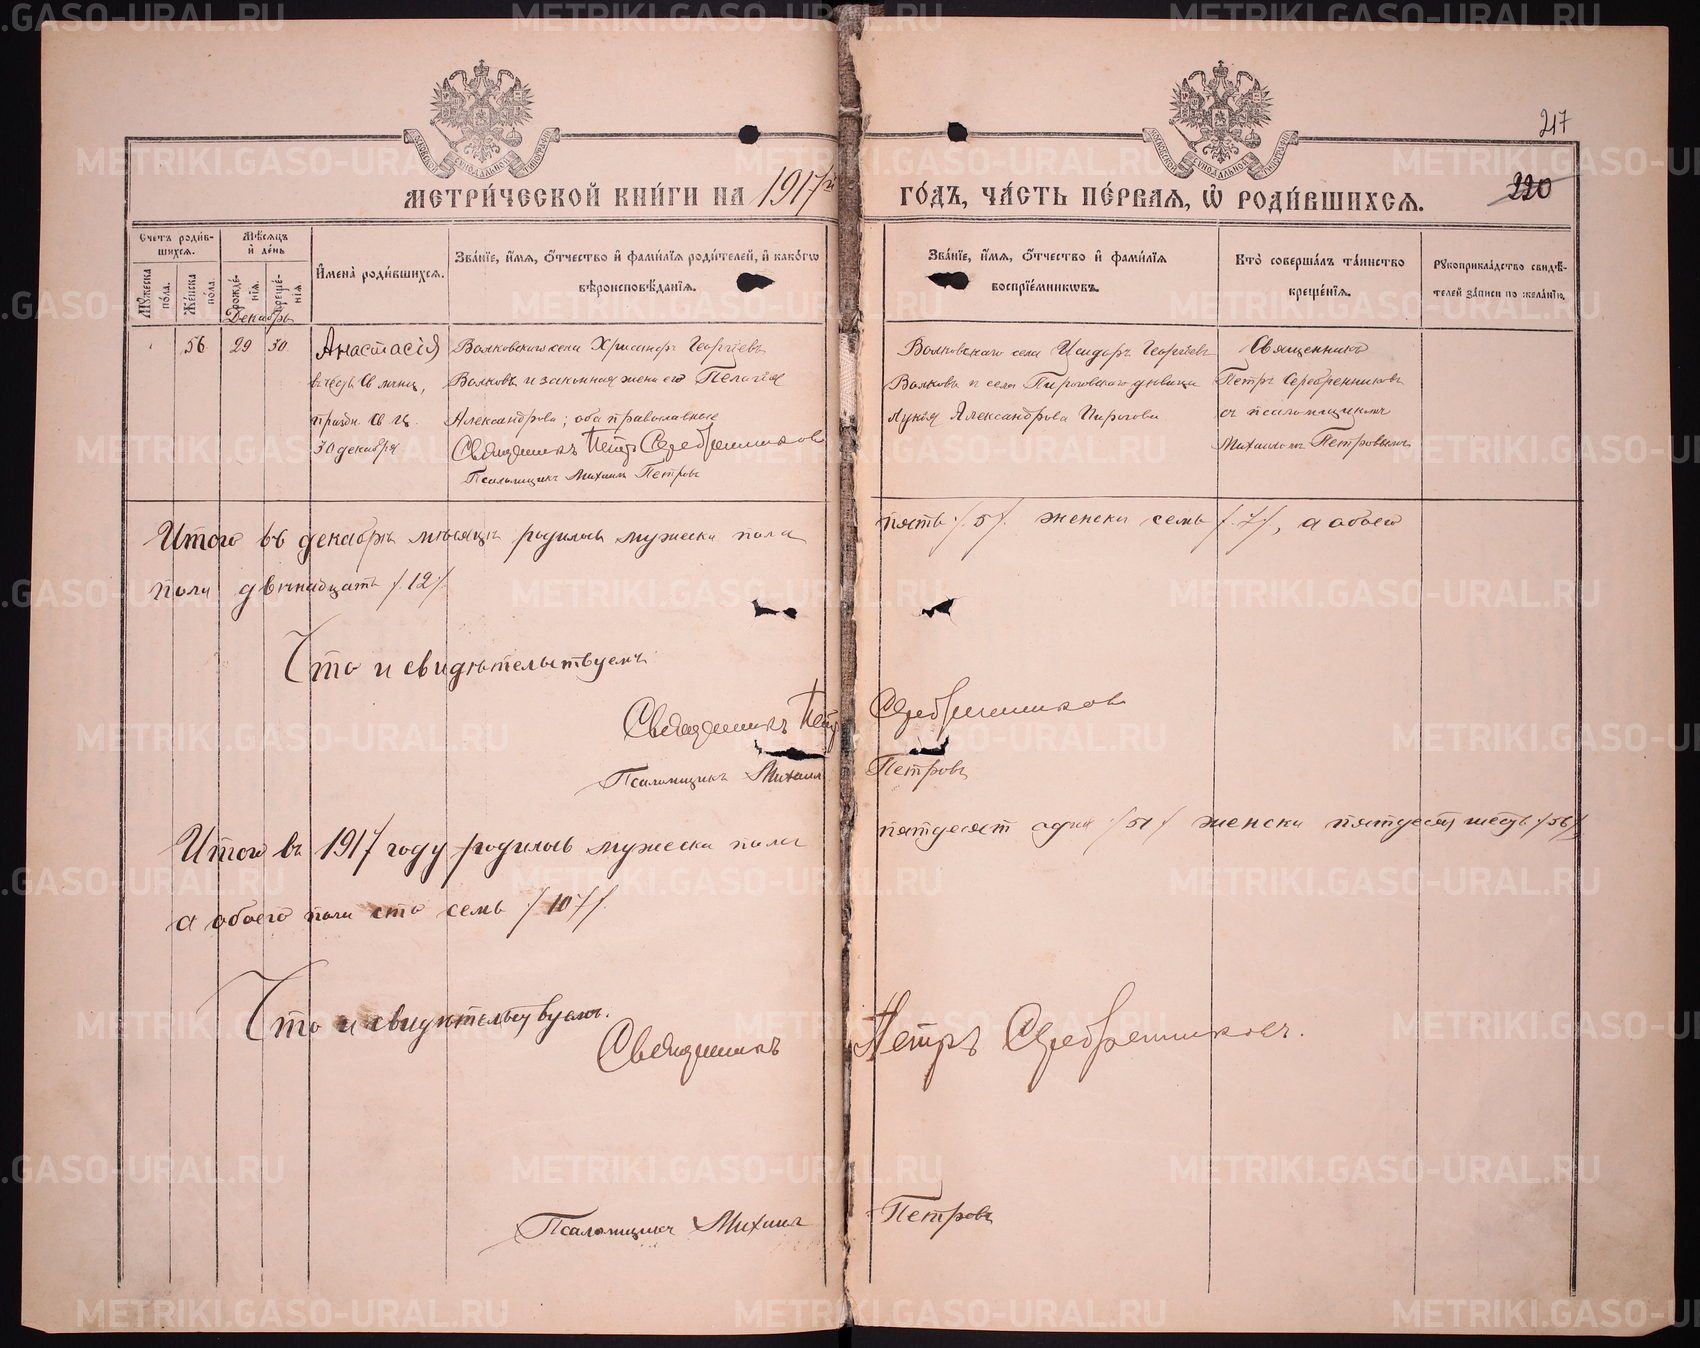 217
220
МЕТРИ́ЧЕСКОЙ КНИ́ГИ НА 1917й ГО́ДЪ, ЧА́СТЬ ПЕ́РВАЯ, Ѡ РОДИ́ВШИХСЯ.
Счетъ роди́вшихся.
Мѣсяцъ и де́нь
Му́жеска по́ла.
Же́нска по́ла.
Рожде́нія.
Креще́нія.
Имена̀ роди́вшихся.
Зва́ніе, и́мя, о́тчество и фами́лія роди́телей, и како́гѡ вѣроисповѣ́данія.
Зва́ніе, и́мя, о́тчество и фами́лія воспріе́мникѡвъ.
Кто̀ соверша́лъ та́инство креще́нія.
Рукоприкла́дство свидѣ́телей за́писи по жела́нію.
Декабрь
56 29 30
Анастасія
въ честь св мчнц,
праздн. св ц.
30 декабря
Волковскаго села Хрисанфъ Георгіевъ
Волковъ и законная жена его Пелагія
Александрова; оба православные
Священникъ Петръ Серебренниковъ
Псаломщикъ Михаилъ Петровъ
Волковскаго села Исидоръ Георгіевъ
Волковъ и села Пироговскаго девица
Лукія Александрова Пирогова
Священникъ
Петръ Серебренниковъ
съ псаломщикомъ
Михаиломъ Петровымъ
Итого въ декабрѣ мѣсяцѣ родилось мужеска пола пять /5/ женска семь /7/, а обоего
пола двѣнадцать /12/.
Что и свидѣтельствуемъ
Священникъ Петръ Серебренниковъ
Псаломщикъ Михаилъ Петровъ
Итого въ 1917 году родилось мужеска пола пятьдесят один /51/ женска пятьдесят шесть /56/
а обоего пола сто семь /107/.
Что и свидѣтельствуемъ.
Священникъ Петръ Серебренниковъ.
Псаломщикъ Михаилъ Петровъ
METRIKI.GASO-URAL.RU